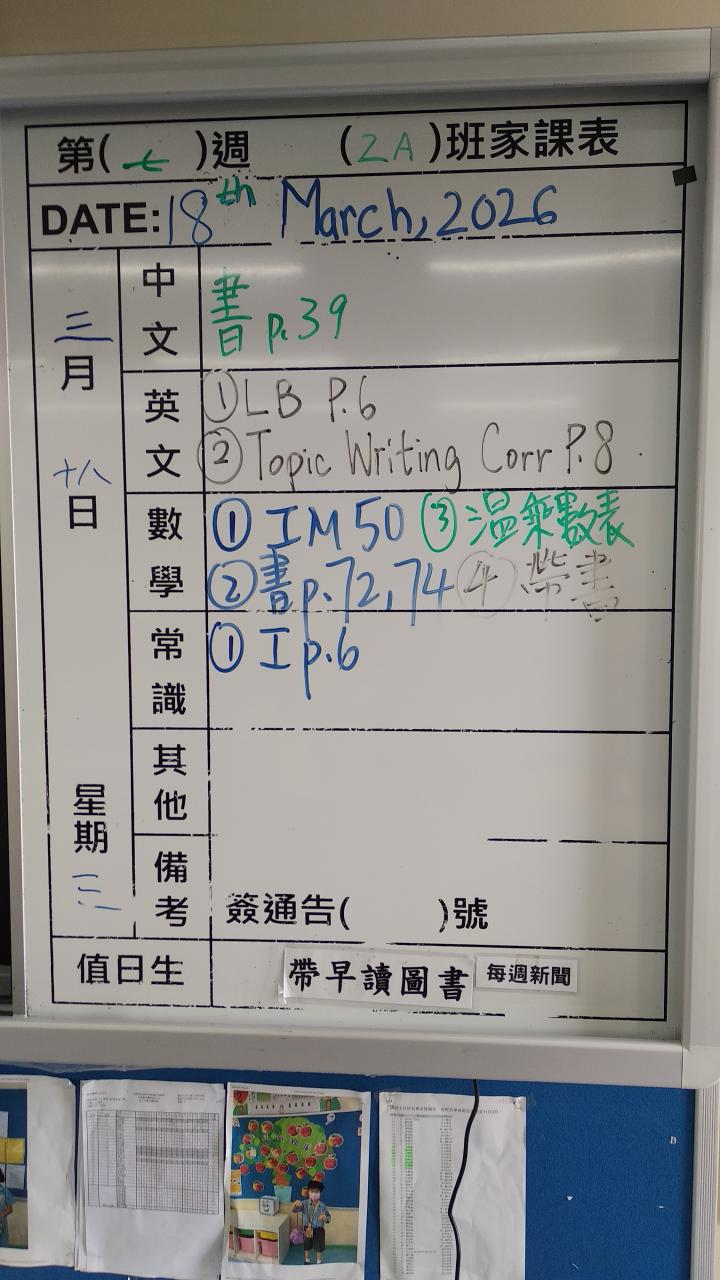 第(七)週 (2A)班家課表
DATE: 18th March, 2026
三月十八日
星期三
中文
書 p.39
英文
① LB P.6
② Topic Writing Corr P.8
數學
① IM 50 ③ 溫乘數表
② 書 p.72, 74 ④ 帶書
常識
① I p.6
其他
備考
簽通告( )號
值日生
帶早讀圖書
每週新聞